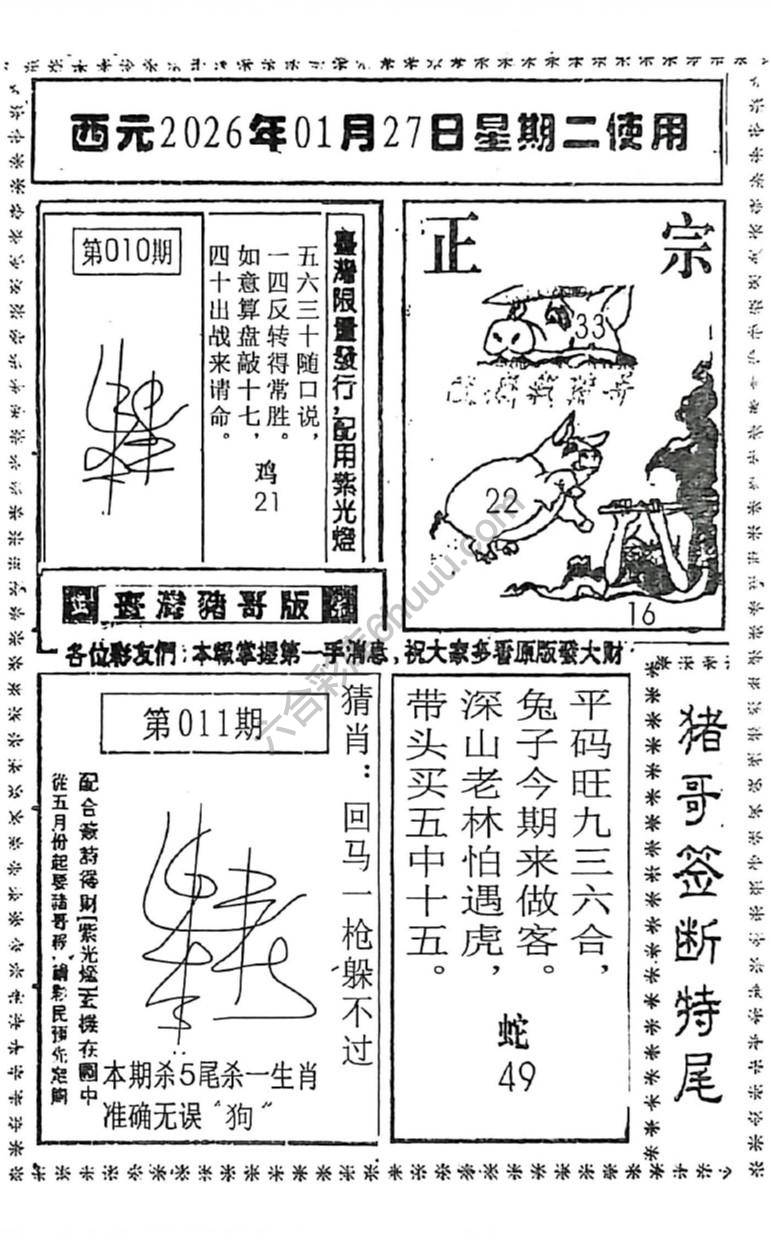 西元2026年01月27日星期二使用
第010期
五六三十随口说，
一四反转得常胜。
如意算盘敲十七，
四十出战来请命。
鸡
21
臺灣限量發行，配用紫光燈
正宗
33
22
16
臺灣豬哥版
各位彩友們：本報掌握第一手消息，祝大家多看原版發大財
第011期
猜肖：回马一枪躲不过
本期杀5尾杀一生肖
准确无误“狗”
平码旺九三六合，
兔子今期来做客。
深山老林怕遇虎，
带头买五中十五。
蛇
49
猪哥签断特尾
六合彩库6huuu.com